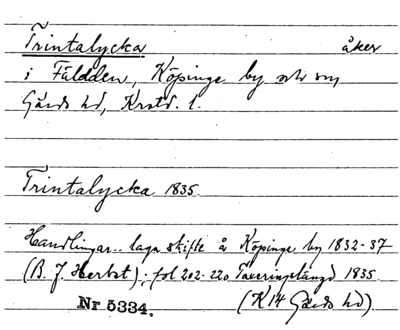 Trintalycka åker
i Fäladen, Köpinge by och sn
Gärds hd, Krstd. l.
Trintalycka 1835.
Handlingar.. laga skifte å Köpinge by 1832-37
(B. J. Herbst); fol 202-220 Taxeringslängd 1835.
(K 14 Gärds hd).
Nr 5334.